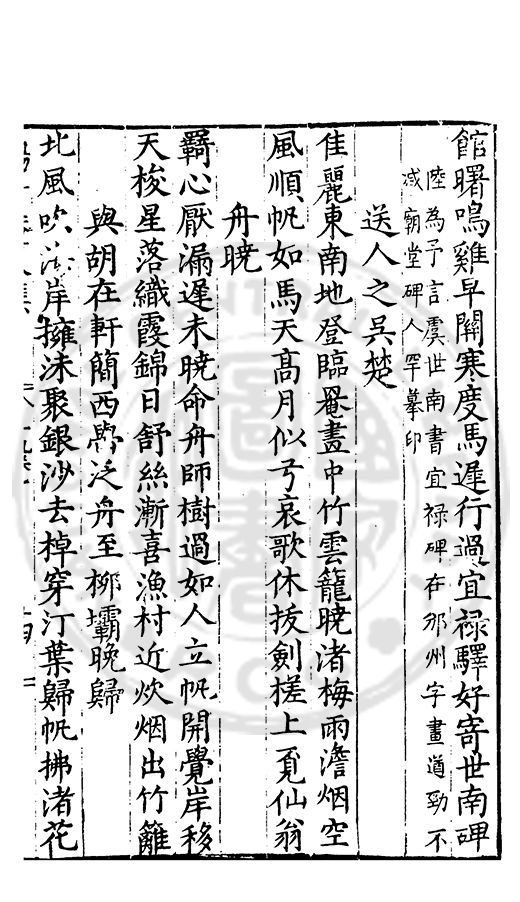 館曙鳴雞早關寒度馬遲行過宜祿驛好寄世南碑
陸為予言虞世南書宜祿碑在邠州字畫遒勁不
減廟堂碑人罕摹印
送人之吳楚
佳麗東南地登臨罨畫中竹雲籠曉渚梅雨澹烟空
風順帆如馬天高月似弓哀歌休拔劍槎上覓仙翁
舟曉
羇心厭漏遲未曉命舟師樹過如人立帆開覺岸移
天梭星落織霞錦日舒絲漸喜漁村近炊烟出竹籬
與胡在軒簡西嵒泛舟至柳壩晚歸
北風吹岸擁沫聚銀沙去棹穿汀葉歸帆拂渚花